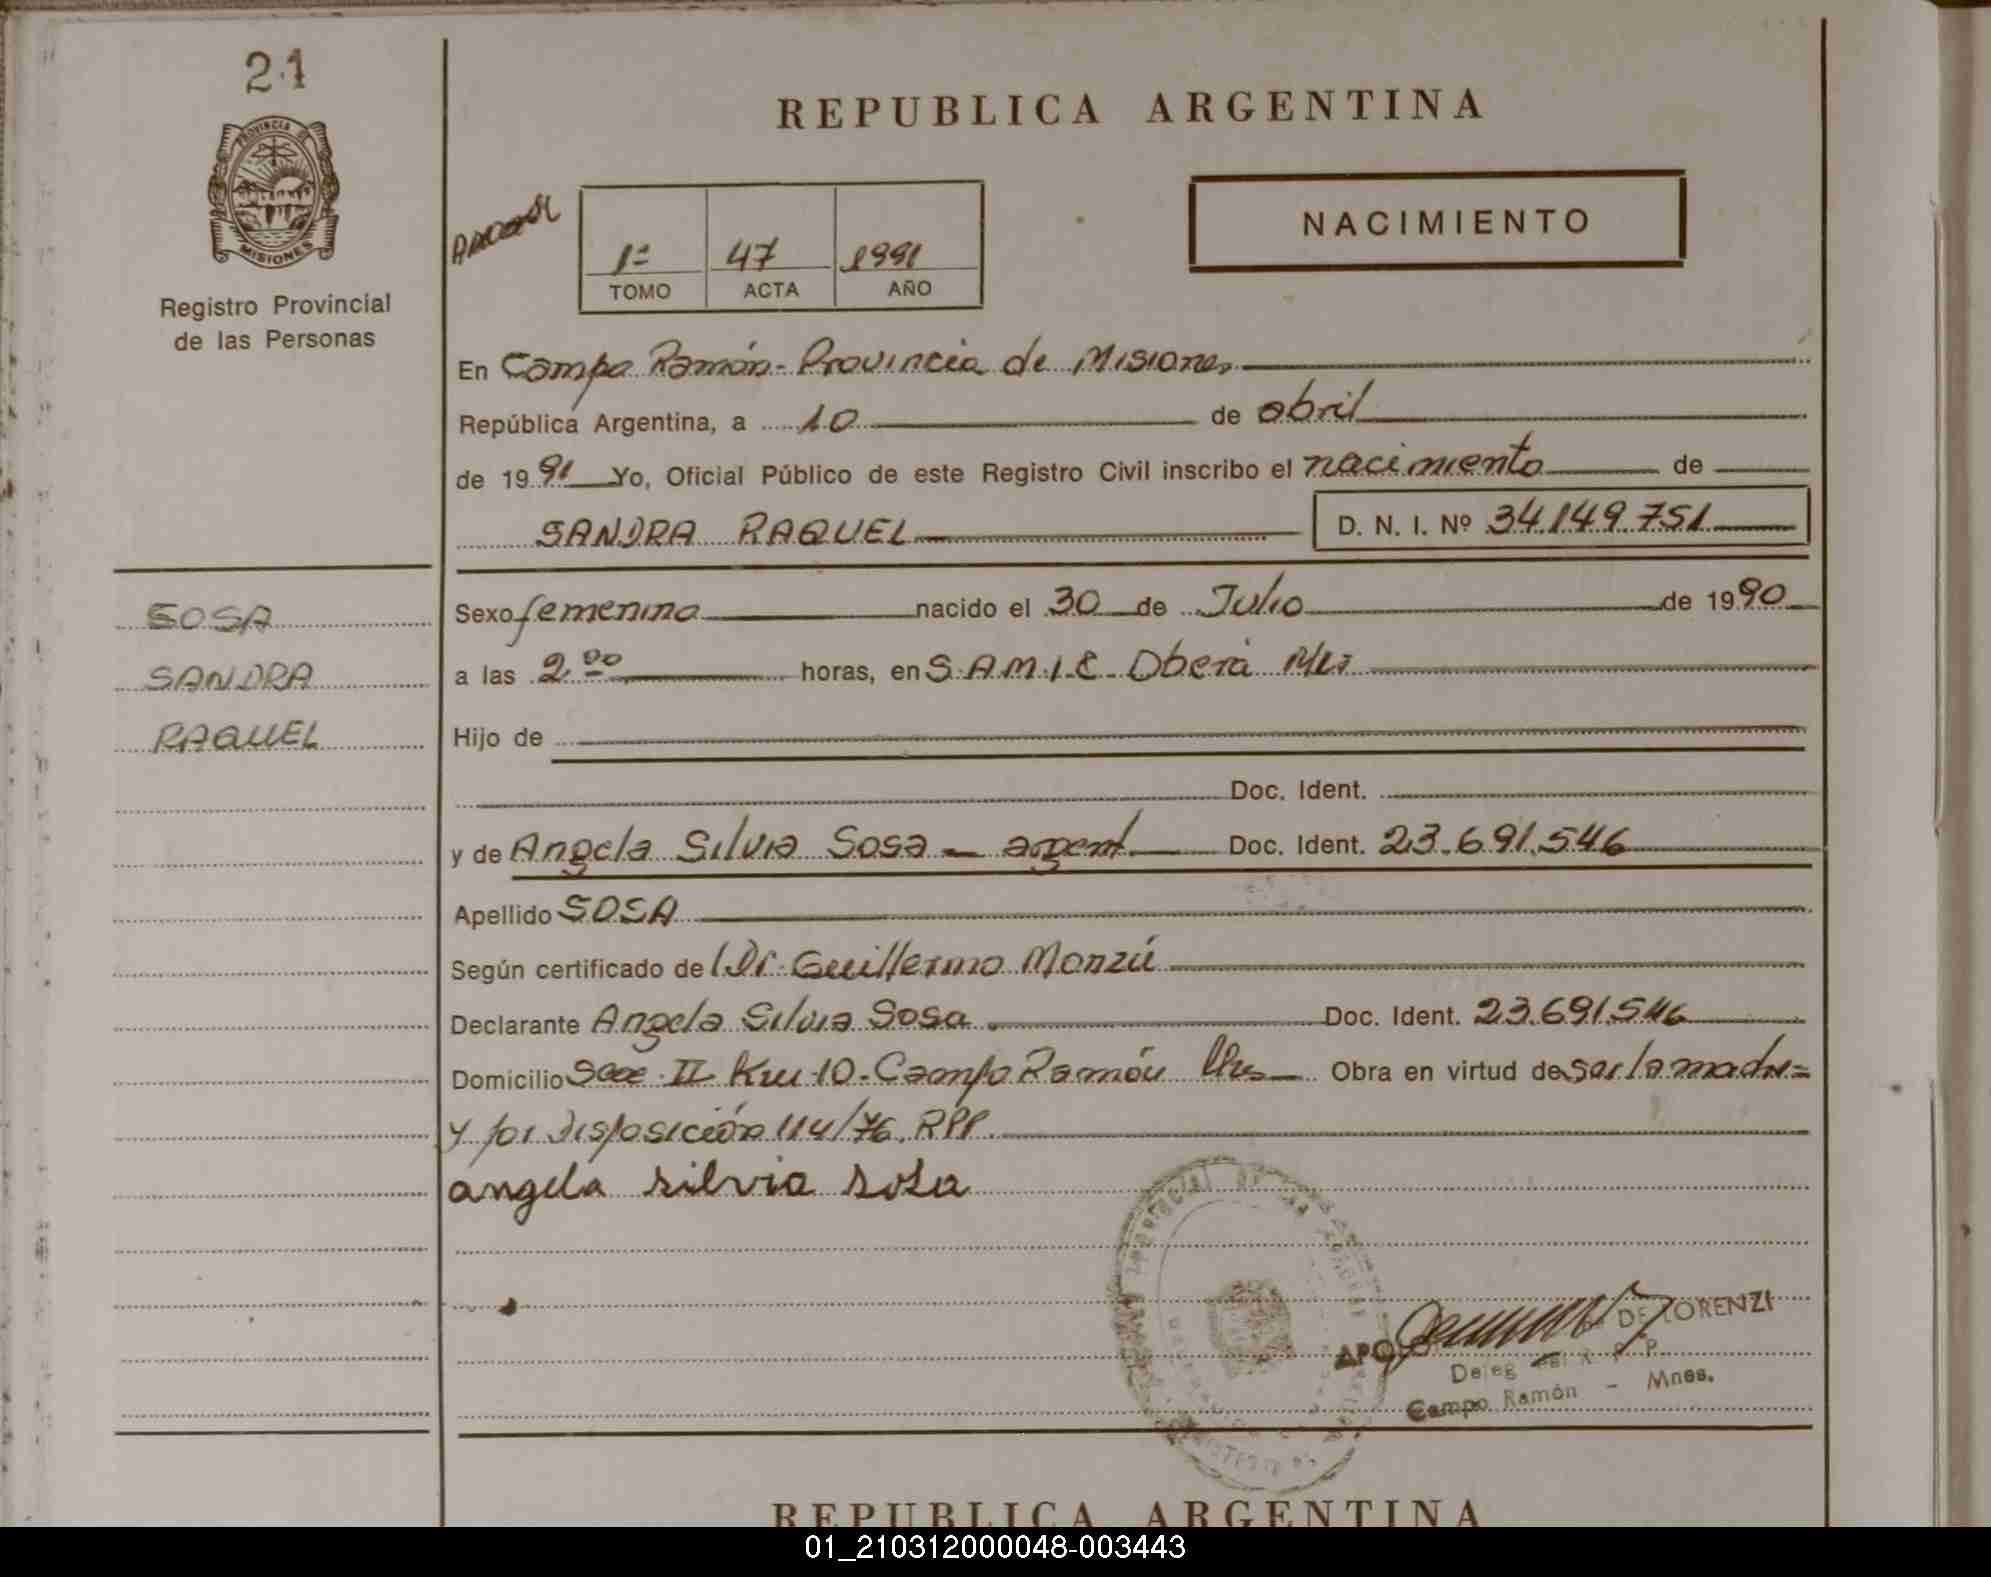 21
PROVINCIA DE
MISIONES
Registro Provincial
de las Personas
REPUBLICA ARGENTINA
NACIMIENTO
1º 47 1991
TOMO ACTA AÑO
En Campo Ramón - Provincia de Misiones
República Argentina, a 10 de abril
de 1991 Yo, Oficial Público de este Registro Civil inscribo el nacimiento de
SANDRA RAQUEL D. N. I. Nº 34.149.751
SOSA
SANDRA
RAQUEL
Sexo femenino nacido el 30 de Julio de 1990
a las 2 00 horas, en S.A.M.I.C - Oberá
Hijo de
Doc. Ident.
y de Angela Silvia Sosa - argent. Doc. Ident. 23.691.546
Apellido SOSA
Según certificado de Dr. Guillermo Monzú
Declarante Angela Silvia Sosa Doc. Ident. 23.691.546
Domicilio Secc II Km 10 - Campo Ramón Obra en virtud de ser la madre
y por Disposición 114/76. RPP.
angela silvia sosa
DE LORENZI
Deleg del R. P. P.
Campo Ramón - Mnes.
REPUBLICA ARGENTINA
01_210312000048-003443